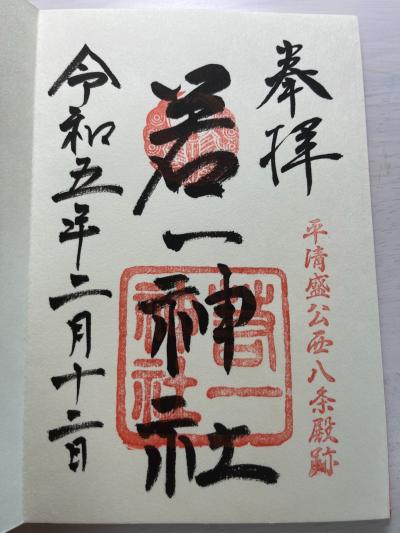 奉拝
平清盛公西八条殿跡
若一神社
若一
神社
令和五年二月十二日